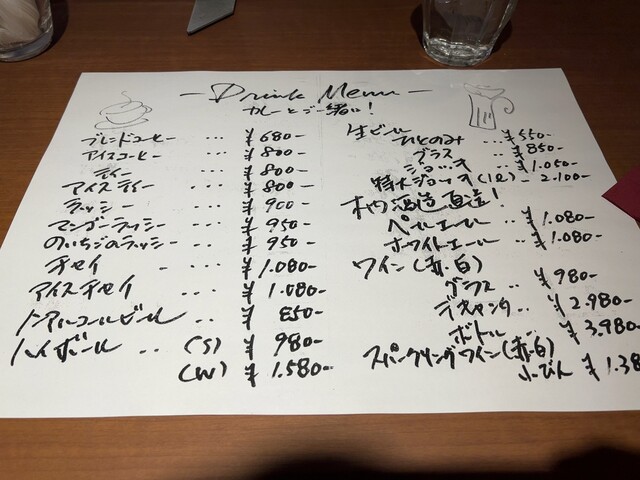 - Drink Menu -
カレーとご一緒に!
ブレンドコーヒー ... ¥680-
アイスコーヒー ... ¥800-
ティー ... ¥800-
アイスティー ... ¥800-
ラッシー ... ¥900-
マンゴーラッシー ... ¥950-
のいちごのラッシー ... ¥950-
チャイ - ... ¥1.080-
アイスチャイ ... ¥1.080-
ノンアルコールビール .. ¥850-
ハイボール .. (S) ¥980-
(W) ¥1.580-
生ビール
ひとのみ .. ¥550-
グラス .. ¥850-
ジョッキ ¥1.050-
特大ジョッキ(1ℓ) - 2.100-
醸造直送!
ペールエール .. ¥1.080-
ホワイトエール .. ¥1.080-
ワイン(赤.白)
グラス .. ¥980-
デキャンタ .. ¥2.980-
ボトル .. ¥3.980-
スパークリングワイン(赤.白)
小びん ¥1.38